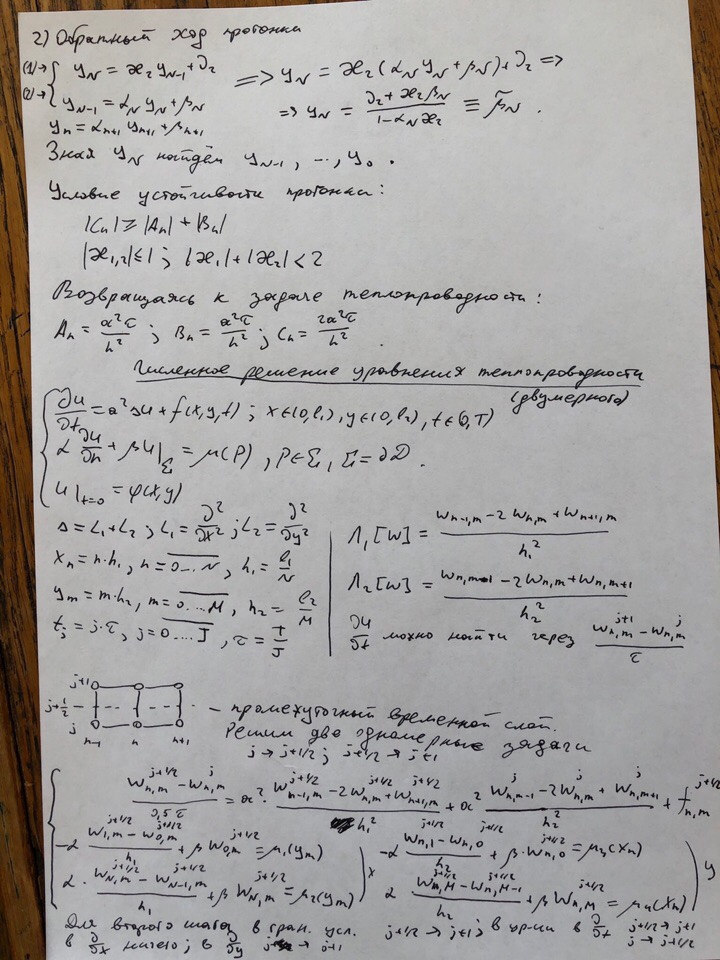 2) Обратный ход прогонки
(1)→ { y_N = ϰ₂ y_{N-1} + ∂₂ ⟹ y_N = ϰ₂ (α_N y_N + β_N) + ∂₂ ⟹
(2)→ { y_{N-1} = α_N y_N + β_N ⟹ y_N = (∂₂ + ϰ₂ β_N)/(1 - α_N ϰ₂) ≡ β̃_N .
y_n = α_{n+1} y_{n+1} + β_{n+1}
Зная y_N найдём y_{N-1}, ..., y_0 .
Условие устойчивости прогонки:
|C_n| ≥ |A_n| + |B_n|
|ϰ_{1,2}| ≤ 1 ; |ϰ₁| + |ϰ₂| < 2
Возвращаясь к задаче теплопроводности:
A_n = a²τ/h² ; B_n = a²τ/h² ; C_n = 2a²τ/h² .
Численное решение уравнения теплопроводности
(двумерного)
∂u/∂t = a²Δu + f(x,y,t) ; x∈(0,l₁), y∈(0,l₂), t∈(0,T)
α ∂u/∂n + βu|_Σ = μ(P) , P∈Σ, Σ = ∂D .
u|_{t=0} = φ(x,y)
Δ = L₁ + L₂ ; L₁ = ∂²/∂x² ; L₂ = ∂²/∂y²
x_n = n·h₁, n = 0...N , h₁ = l₁/N
y_m = m·h₂, m = 0...M , h₂ = l₂/M
t_j = j·τ, j = 0...J , τ = T/J
Λ₁[w] = (w_{n-1,m} - 2w_{n,m} + w_{n+1,m})/h₁²
Λ₂[w] = (w_{n,m-1} - 2w_{n,m} + w_{n,m+1})/h₂²
∂u/∂t можно найти через (w_{n,m}^{j+1} - w_{n,m}^{j})/τ
j+1
j+1/2
j
n-1 n n+1
- промежуточный временной слой.
Решим две одномерные задачи
j → j+1/2 ; j+1/2 → j+1
(w_{n,m}^{j+1/2} - w_{n,m}^{j})/(0,5τ) = a² · (w_{n-1,m}^{j+1/2} - 2w_{n,m}^{j+1/2} + w_{n+1,m}^{j+1/2})/h₁² + a² (w_{n,m-1}^{j} - 2w_{n,m}^{j} + w_{n,m+1}^{j})/h₂² + f_{n,m}^{j+1/2}
-α (w_{1,m}^{j+1/2} - w_{0,m}^{j+1/2})/h₁ + β w_{0,m}^{j+1/2} = μ₁(y_m) -α (w_{n,1}^{j+1/2} - w_{n,0}^{j+1/2})/h₂ + β · w_{n,0}^{j+1/2} = μ₃(x_n)
α · (w_{N,m}^{j+1/2} - w_{N-1,m}^{j+1/2})/h₁ + β w_{N,m}^{j+1/2} = μ₂(y_m) ) x α (w_{n,M}^{j+1/2} - w_{n,M-1}^{j+1/2})/h₂ + β w_{n,M}^{j+1/2} = μ₄(x_n) ) y
Для второго шага в гран. усл. j+1/2 → j+1 ; в ур-ии в ∂/∂t j+1/2 → j+1
в ∂/∂x ничего ; в ∂/∂y j → j+1 j → j+1/2